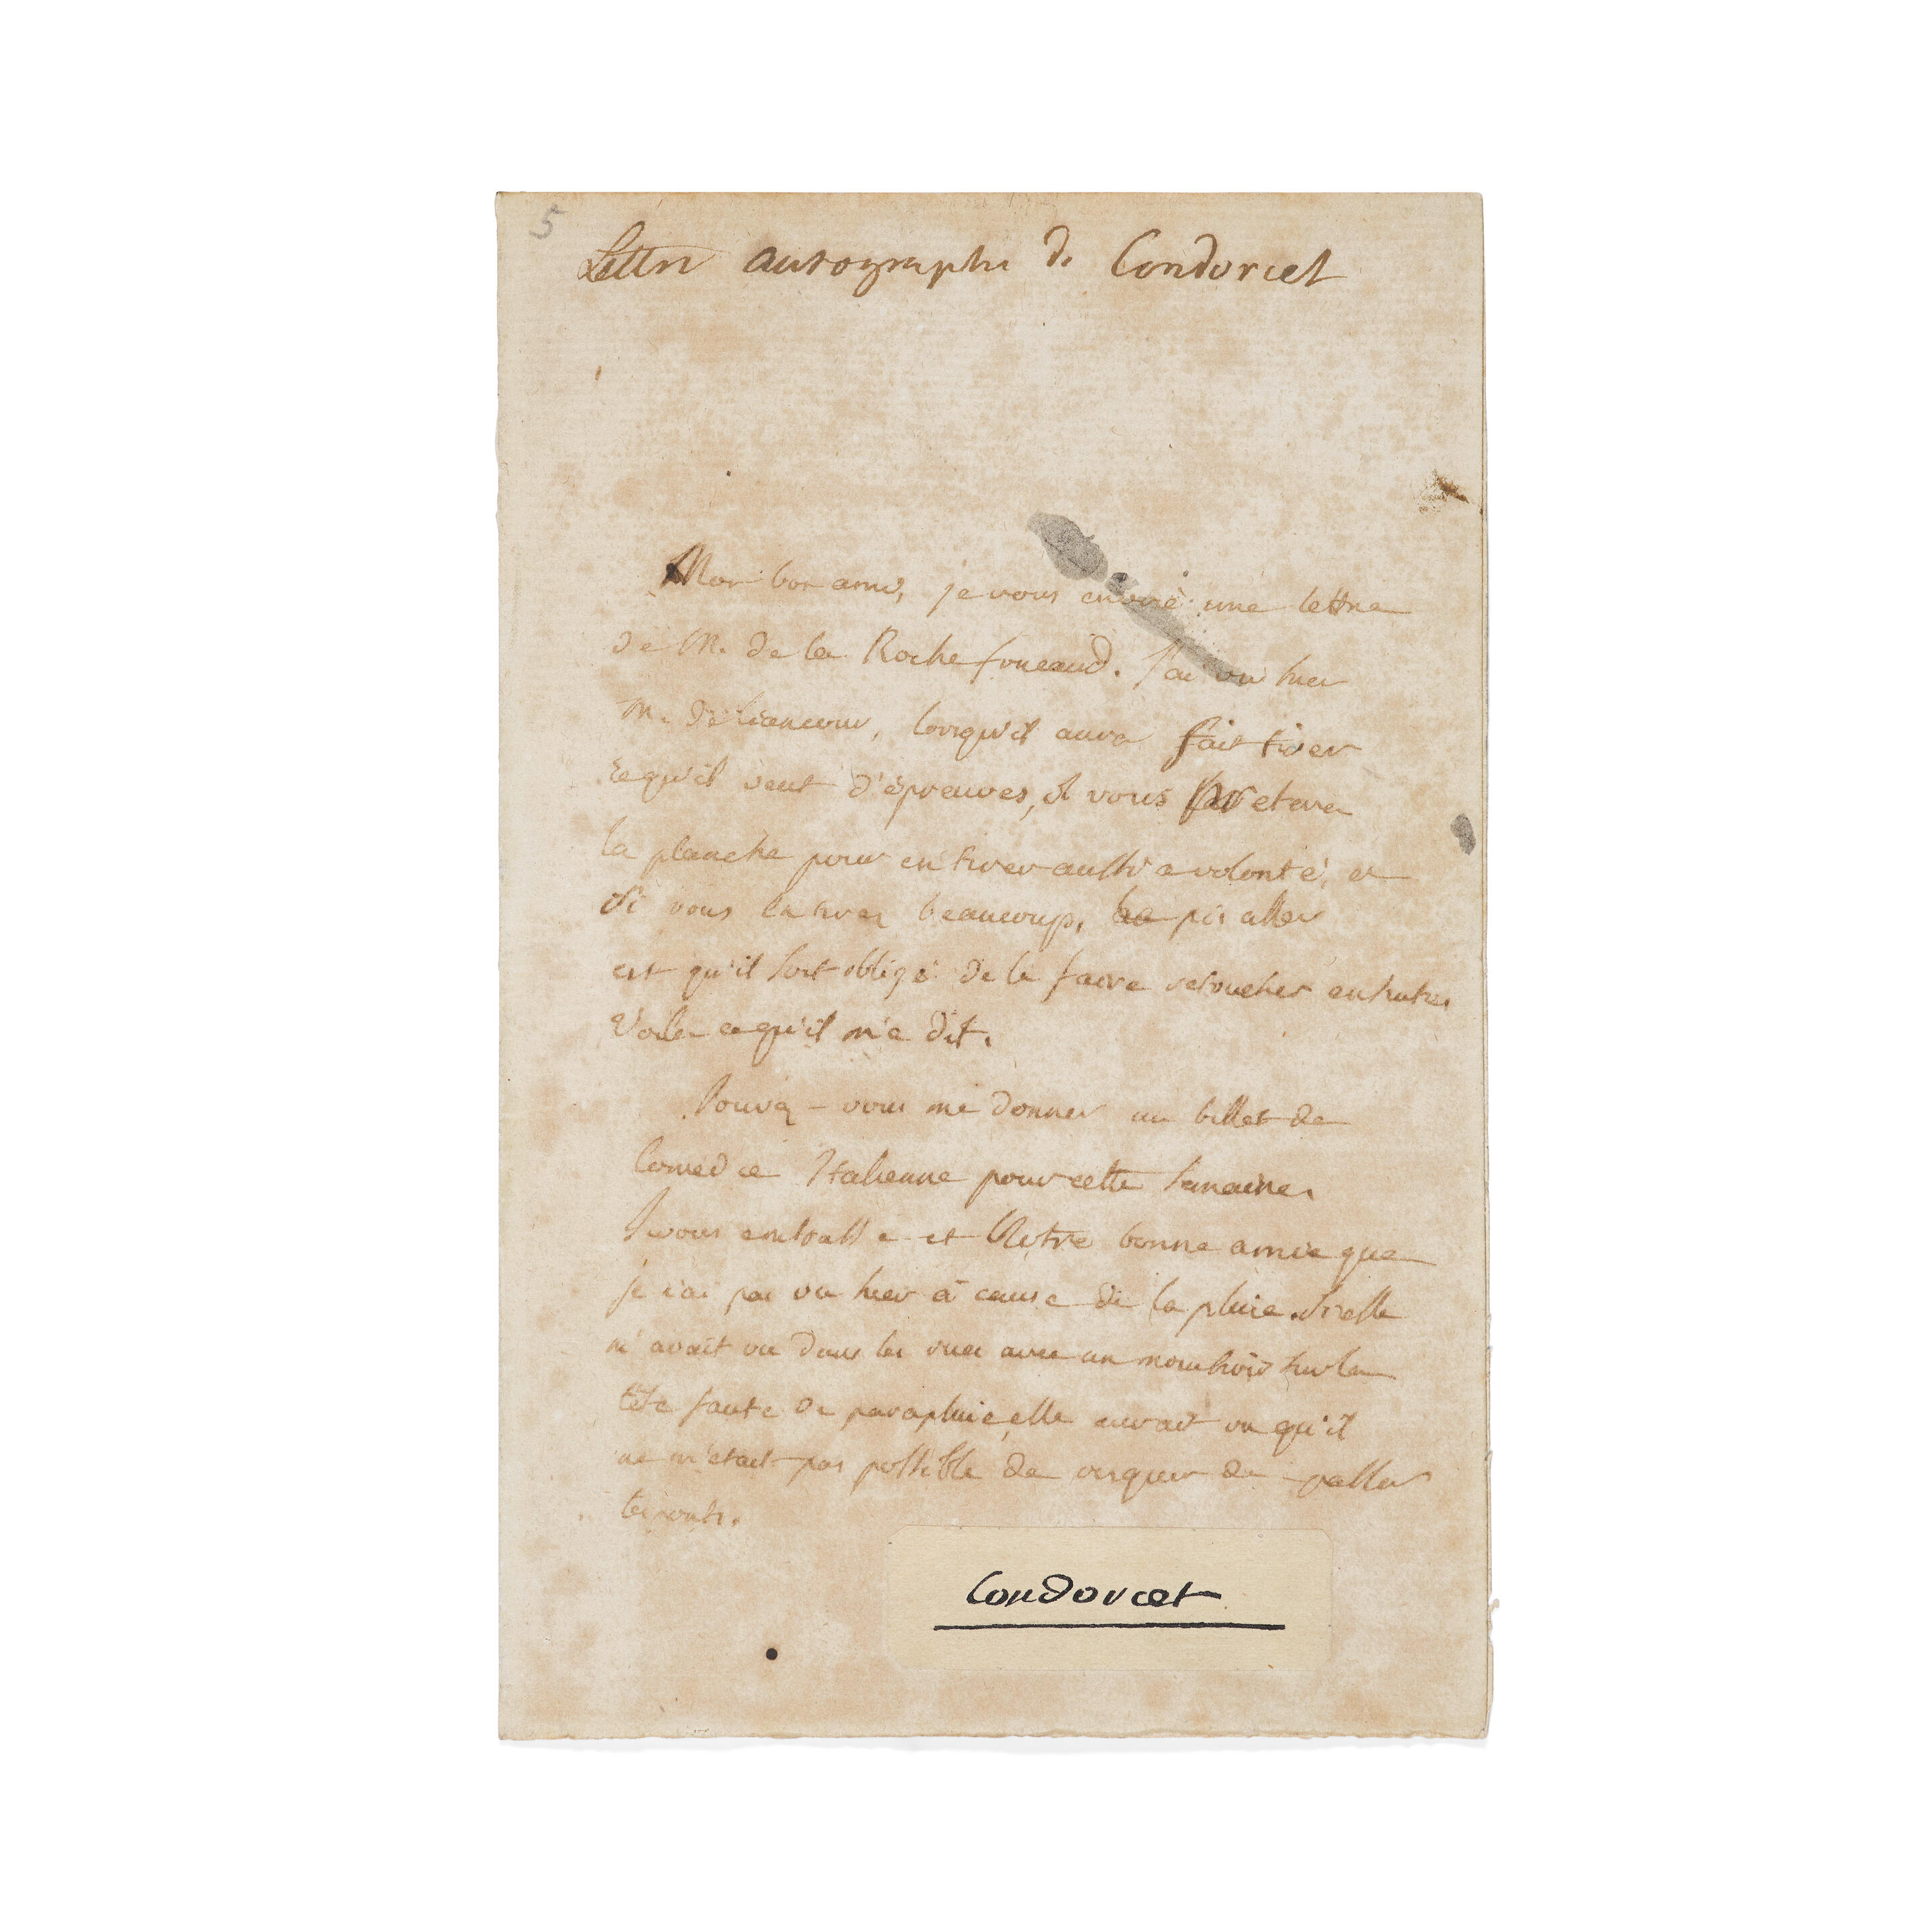 5
Lettre autographe de Condorcet
Mon bon ami, je vous envoie une lettre
de M. de la Rochefoucaud. J'ai vu hier
M. de liancour, lorsqu'il aura fait tirer
ce qu'il veut d'épreuves, il vous pretera
la planche pour en tirer aussi a volonté, et
si vous en tirez beaucoup, le pis aller
est qu'il soit obligé de la faire retoucher ensuite.
Voila ce qu'il m'a dit.
Pouvez-vous me donner un billet de
Comedie Italienne pour cette semaine.
Je vous embrasse et Notre bonne amie que
je n'ai pas vu hier à cause de la pluie. Si elle
m'avait vu dans les rues avec un mouchoir sur la
tête faute de parapluie, elle aurait vu qu'il
ne m'etait pas possible de risquer de passer
les ponts.
Condorcet